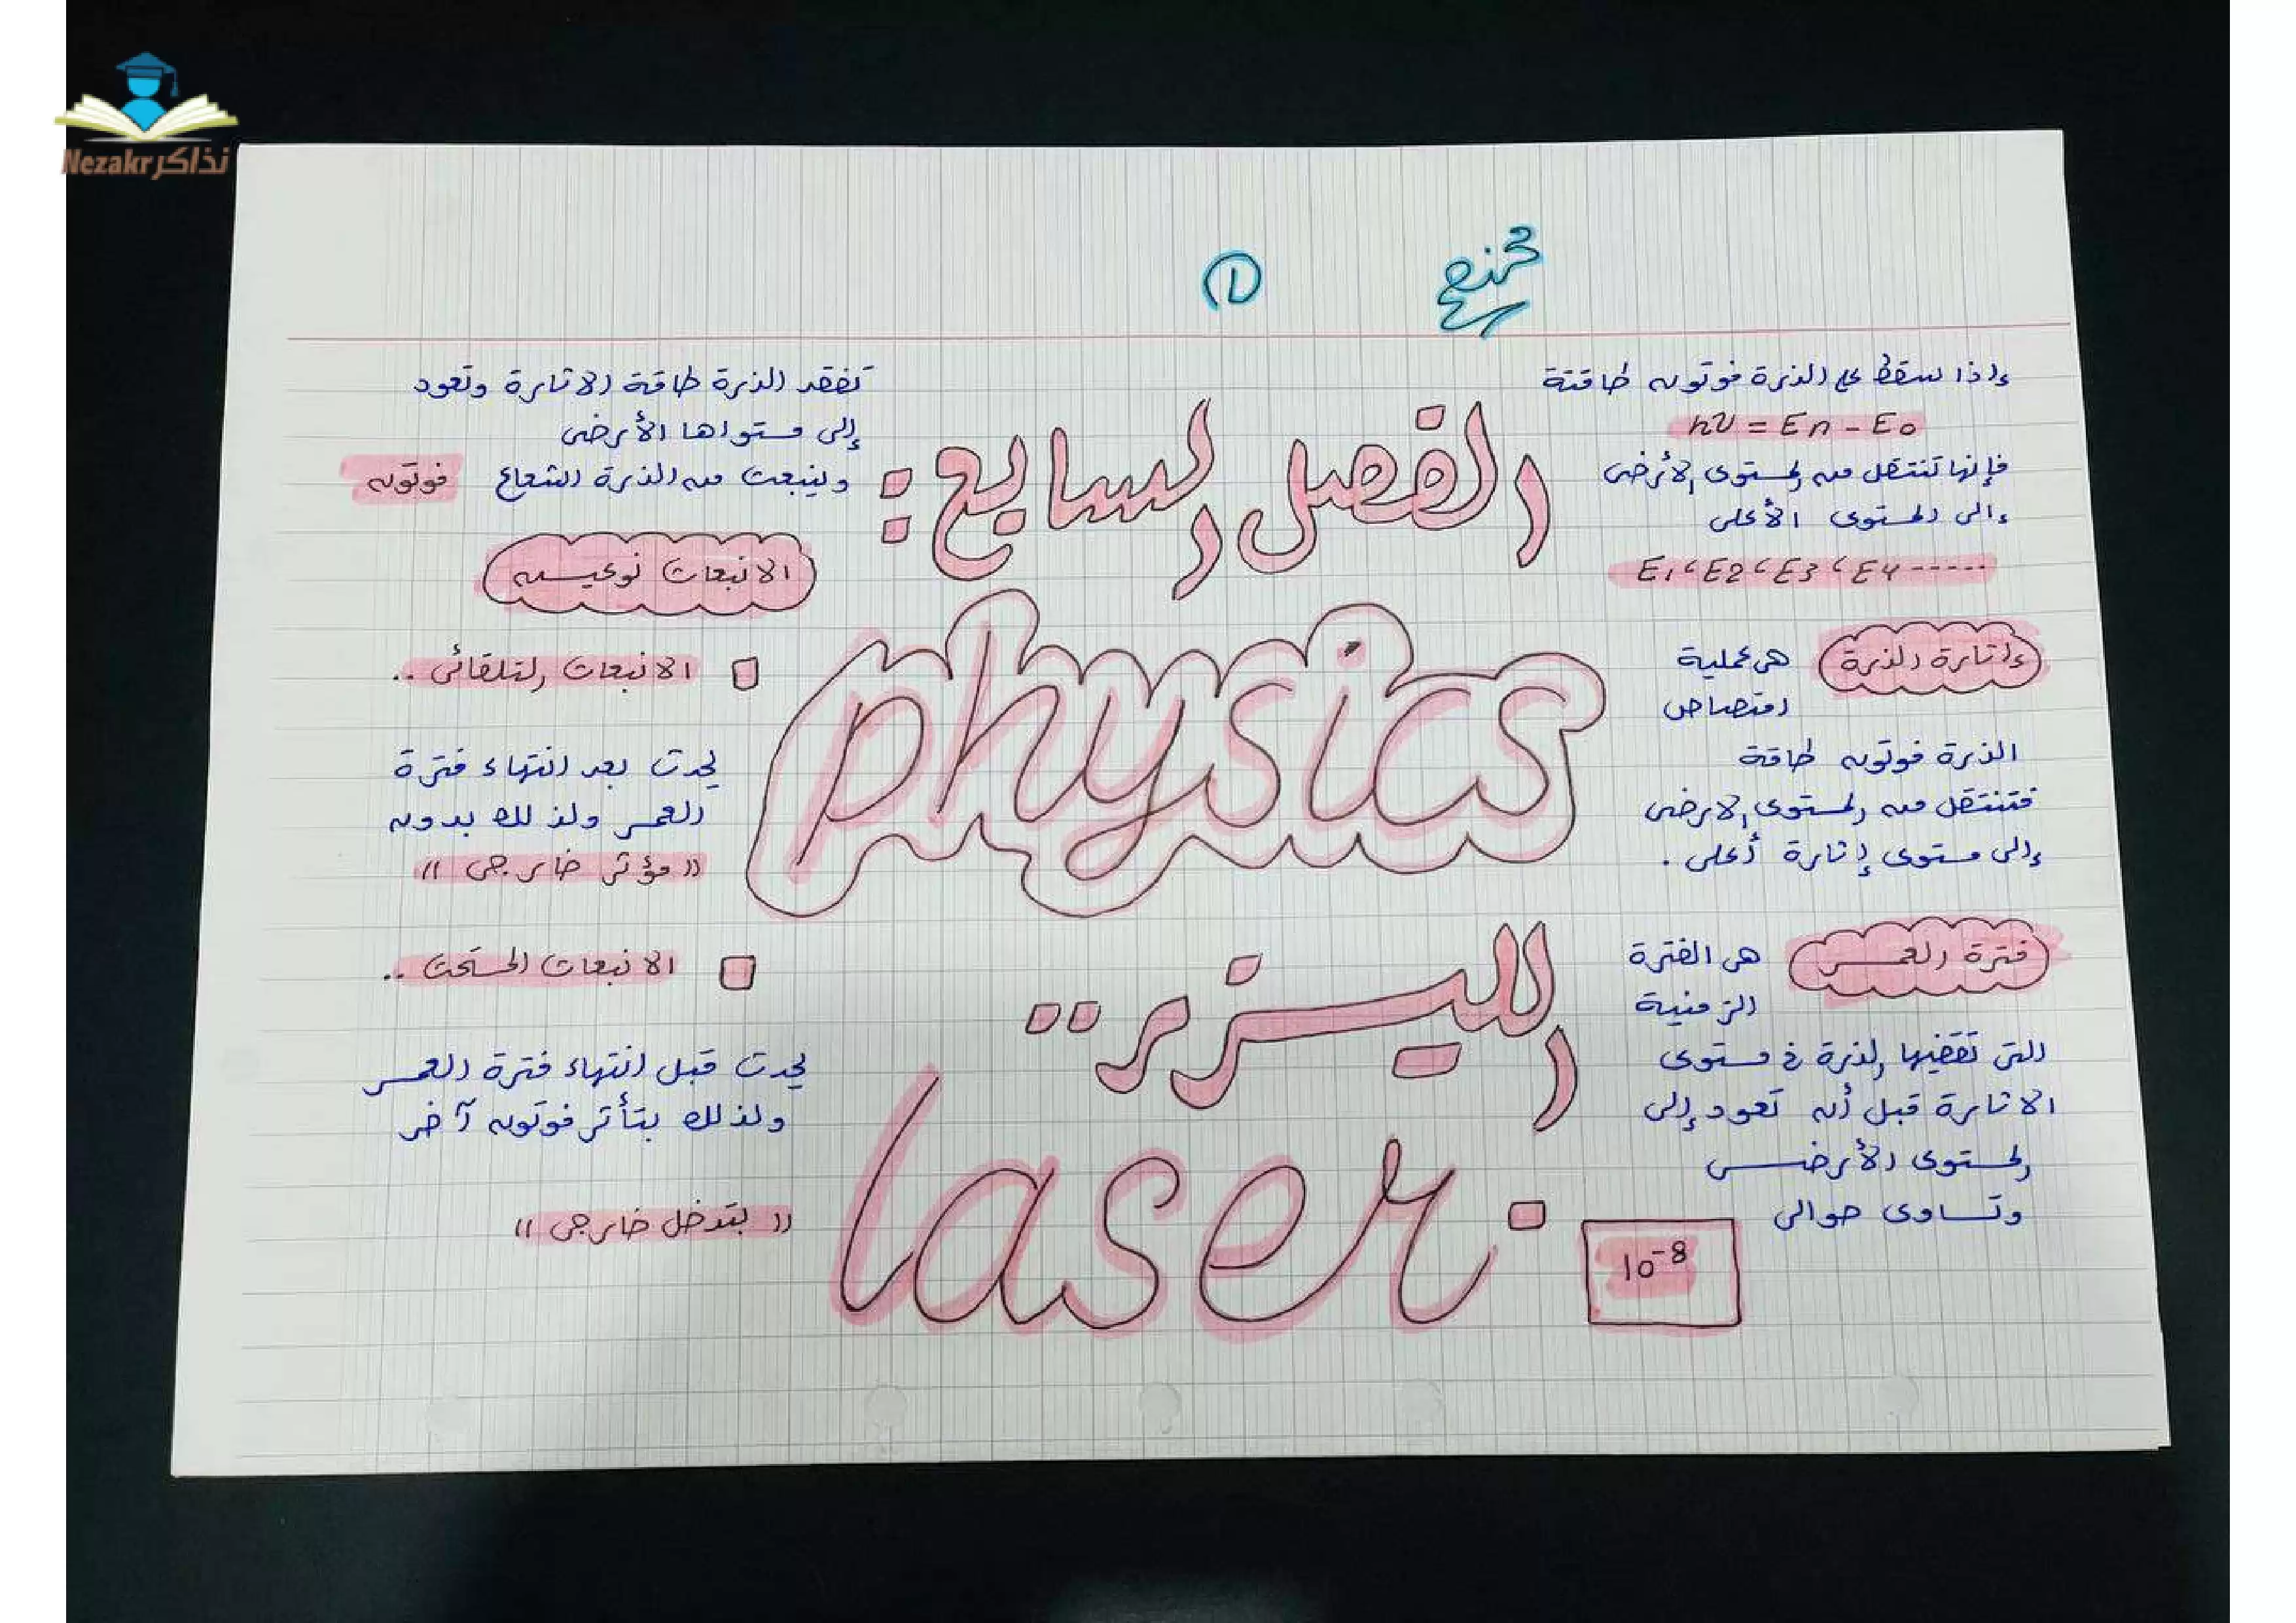 نذاكر Nezakr
①
إذا سقط على الذرة فوتون طاقتة
hν = En - E0
فإنها تنتقل من المستوى الأرضى
إلى المستوى الأعلى
E1 ، E2 ، E3 ، E4 -----
إثارة الذرة هى عملية
امتصاص
الذرة فوتون طاقة
فتنتقل من المستوى الارضى
إلى مستوى إثارة أعلى .
فترة العمر هى الفترة
الزمنية
التى تقضيها الذرة فى مستوى
الاثارة قبل أن تعود إلى
المستوى الأرضى
وتساوى حوالى
10-8
الفصل السابع :
physics
الليزر ..
laser.
تفقد الذرة طاقة الاثارة وتعود
إلى مستواها الأرضى
وينبعث من الذرة الشعاع فوتون
الانبعاث نوعين
الانبعاث التلقائى ..
يحدث بعد انتهاء فترة
العمر ولذلك بدون
(( مؤثر خارجى ))
الانبعاث المستحث ..
يحدث قبل انتهاء فترة العمر
ولذلك بتأثر فوتون آخر
(( بتدخل خارجى ))